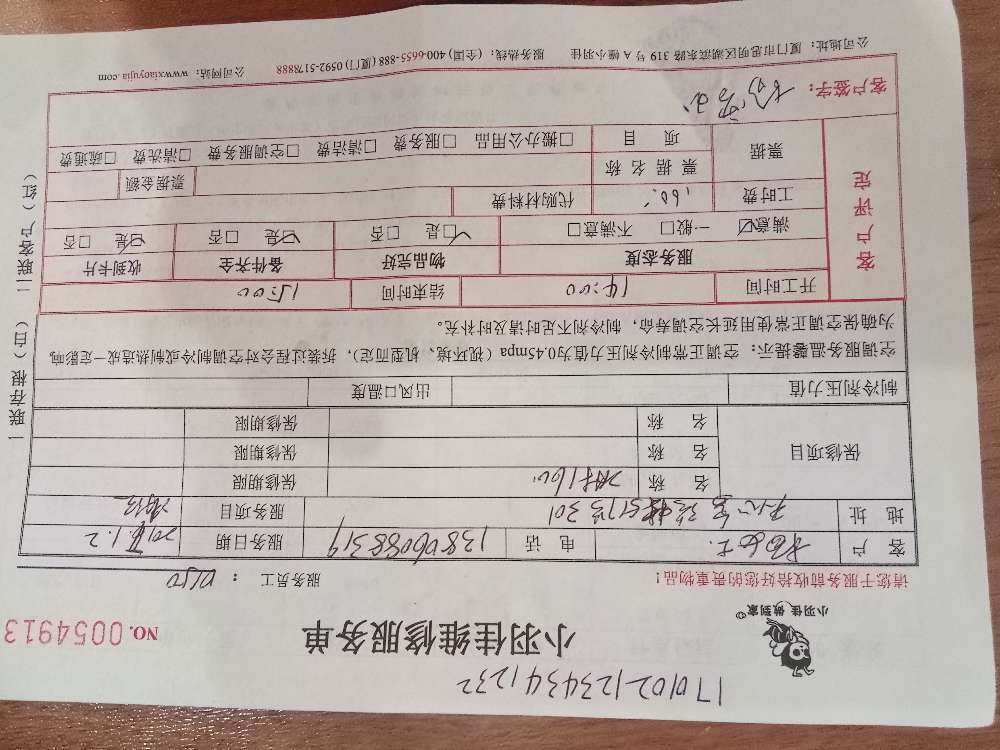 1701021234341232
小羽佳 做到家
小羽佳维修服务单 NO. 0054913
请您于服务前收拾好您的贵重物品! 服务员工:
客户 电话 13806088319 服务日期 1.2
地址 301 服务项目
保修项目 名称 保修期限
名称 保修期限
名称 保修期限
制冷剂压力值 出风口温度
空调服务温馨提示:空调正常制冷剂压力值为0.45mpa(视环境、机型而定),拆装过程会对空调制冷或制热造成一定影响
为确保空调正常使用延长空调寿命,制冷剂不足时请及时补充。
客户评定
开工时间 14:00 结束时间 15:00
服务态度 物品完好 备件齐全 收到卡片
满意☑ 一般□ 不满意□ ☑是 □否 ☑是 □否 ☑是 □否
工时费 160. 代购材料费
票据 票据名称 票据金额
项目 □搬办公用品 □服务费 □清洁费 □空调服务费 □清洗费 □疏通费
客户签字:
公司地址:厦门市思明区湖滨东路319号A幢小羽佳 服务热线:(全国)400-6655-888(厦门)0592-5178888 公司网站:www.xiaoyujia.com
一联存根(白) 二联客户(红)